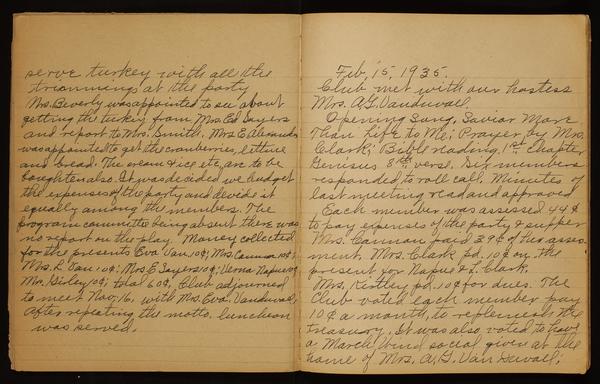 serve turkey with all the
trimmings at the party
Mrs. Beverly was appointed to see about
getting the turkey from Mrs. Ed Sayers
and report to Mrs. Smith. Mrs E Alexander
was appointed to get the cranberries, lettuce
and bread. The cream & ice etc, are to be
boughten also. It was decided we budget
the expenses of the party and devide it
equally among the members. The
program committee being absent there was
no report on the play. Money collected
for the presents Eva Van 10¢; Mrs Cannon 10¢;
Mrs. R Van 10¢; Mrs E Sayers 10¢; Verna Napue 10¢
Mrs. Girley 10¢; total 60¢. Club adjourned
to meet Nov. 16. with Mrs. Eva. Vanduvall,
After repeating the motto. luncheon
was served.
Feb, 15, 1935.
Club met with our hostess
Mrs. A.G. Vanduvall.
Opening Song, Savior More
Than Life to Me; Prayer by Mrs.
Clark; Bible reading, 1st Chapter
Genisus 8th verse. Six members
responded to roll call. Minutes of
last meeting read and approved
Each member was assessed 44¢
to pay expenses of the party & supper
Mrs. Cannon paid 39¢ of this assess-
ment. Mrs. Clark pd. 10¢ on the
present for Napue & L. Clark,
Mrs. Kirtley pd. 10¢ for dues. The
Club voted each member pay
10¢ a month, to replenish the
treasury. It was also voted to have
a March Wind social given at the
home of Mrs. A. G. Van Duvall;